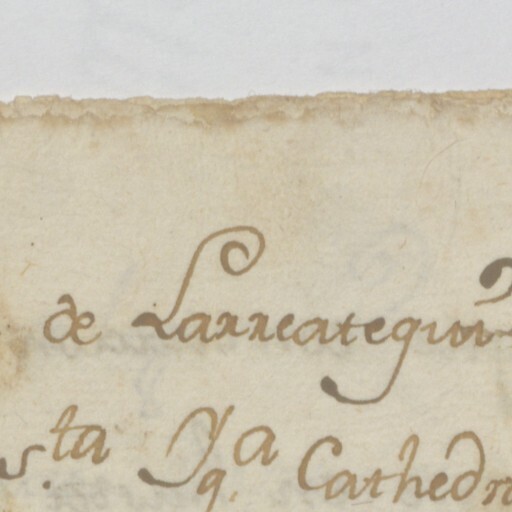 de Larreategui
s.ta Yg.a Cathedr